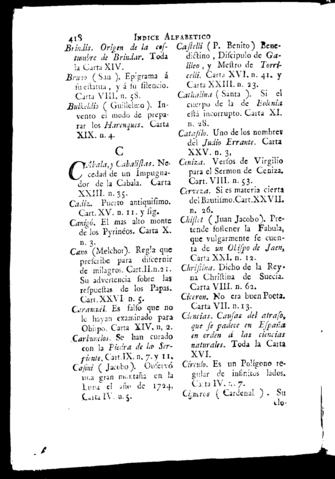 418 INDICE ALFABETICO
Brindis. Origen de la cos-
tumbre de Brindar. Toda
la Carta XIV.
Bruno (San). Epigrama á
su estatua, y á su silencio.
Carta VIII. n. 58.
Bukeldis (Guillelmo). In-
vento el modo de prepa-
rar los Harengues. Carta
XIX. n. 4.
C
Cábala, y Cabalistas. Ne-
cedad de un Impugna-
dor de la Cabala. Carta
XXIII. n. 35.
Cadiz. Puerto antiquisimo.
Cart. XV. n. 11. y sig.
Canigó. El mas alto monte
de los Pyrinéos. Carta X.
n. 3.
Cano (Melchor). Regla que
prescribe para discernir
de milagros. Cart. II. n. 21.
Su advertencia sobre las
respuestas de los Papas.
Cart. XXVI n. 5.
Caramuel. Es falso que no
le hayan examinado para
Obispo. Carta XIV. n. 2.
Carbuncios. Se han curado
con la Piedra de la Ser-
piente. Cart. IX. n. 7. y 11.
Casini (Jacobo). Observó
una gran montaña en la
Luna el año de 1724.
Carta IV. n. 5.
Castelli (P. Benito) Bene-
dictino, Discipulo de Ga-
lileo, y Mestro de Torri-
celli. Carta XVI. n. 41. y
Carta XXIII. n. 23.
Cathalina (Santa). Si el
cuerpo de la de Bolonia
está incorrupto. Carta XI.
n. 28.
Catafilo. Uno de los nombres
del Judio Errante. Carta
XXV. n. 3,
Ceniza. Versos de Virgilio
para el Sermon de Ceniza.
Cart. VIII. n. 53.
Cerveza. Si es materia cierta
del Bautismo. Cart. XXVII.
n. 26.
Chiflet (Juan Jacobo). Pre-
tende sostener la Fabula,
que vulgarmente se cuen-
ta de un Obispo de Jaen,
Carta XXI. n. 12.
Christina. Dicho de la Rey-
na Christina de Suecia.
Carta VIII. n. 62.
Ciceron. No era buen Poeta.
Cart. VII. n. 13.
Ciencias. Causas del atraso,
que se padece en España
en orden á las ciencias
naturales. Toda la Carta
XVI.
Circulo. Es un Poligono re-
gular de infinitos lados.
Carta IV. n. 7.
Cisneros (Cardenal). Su
elo-